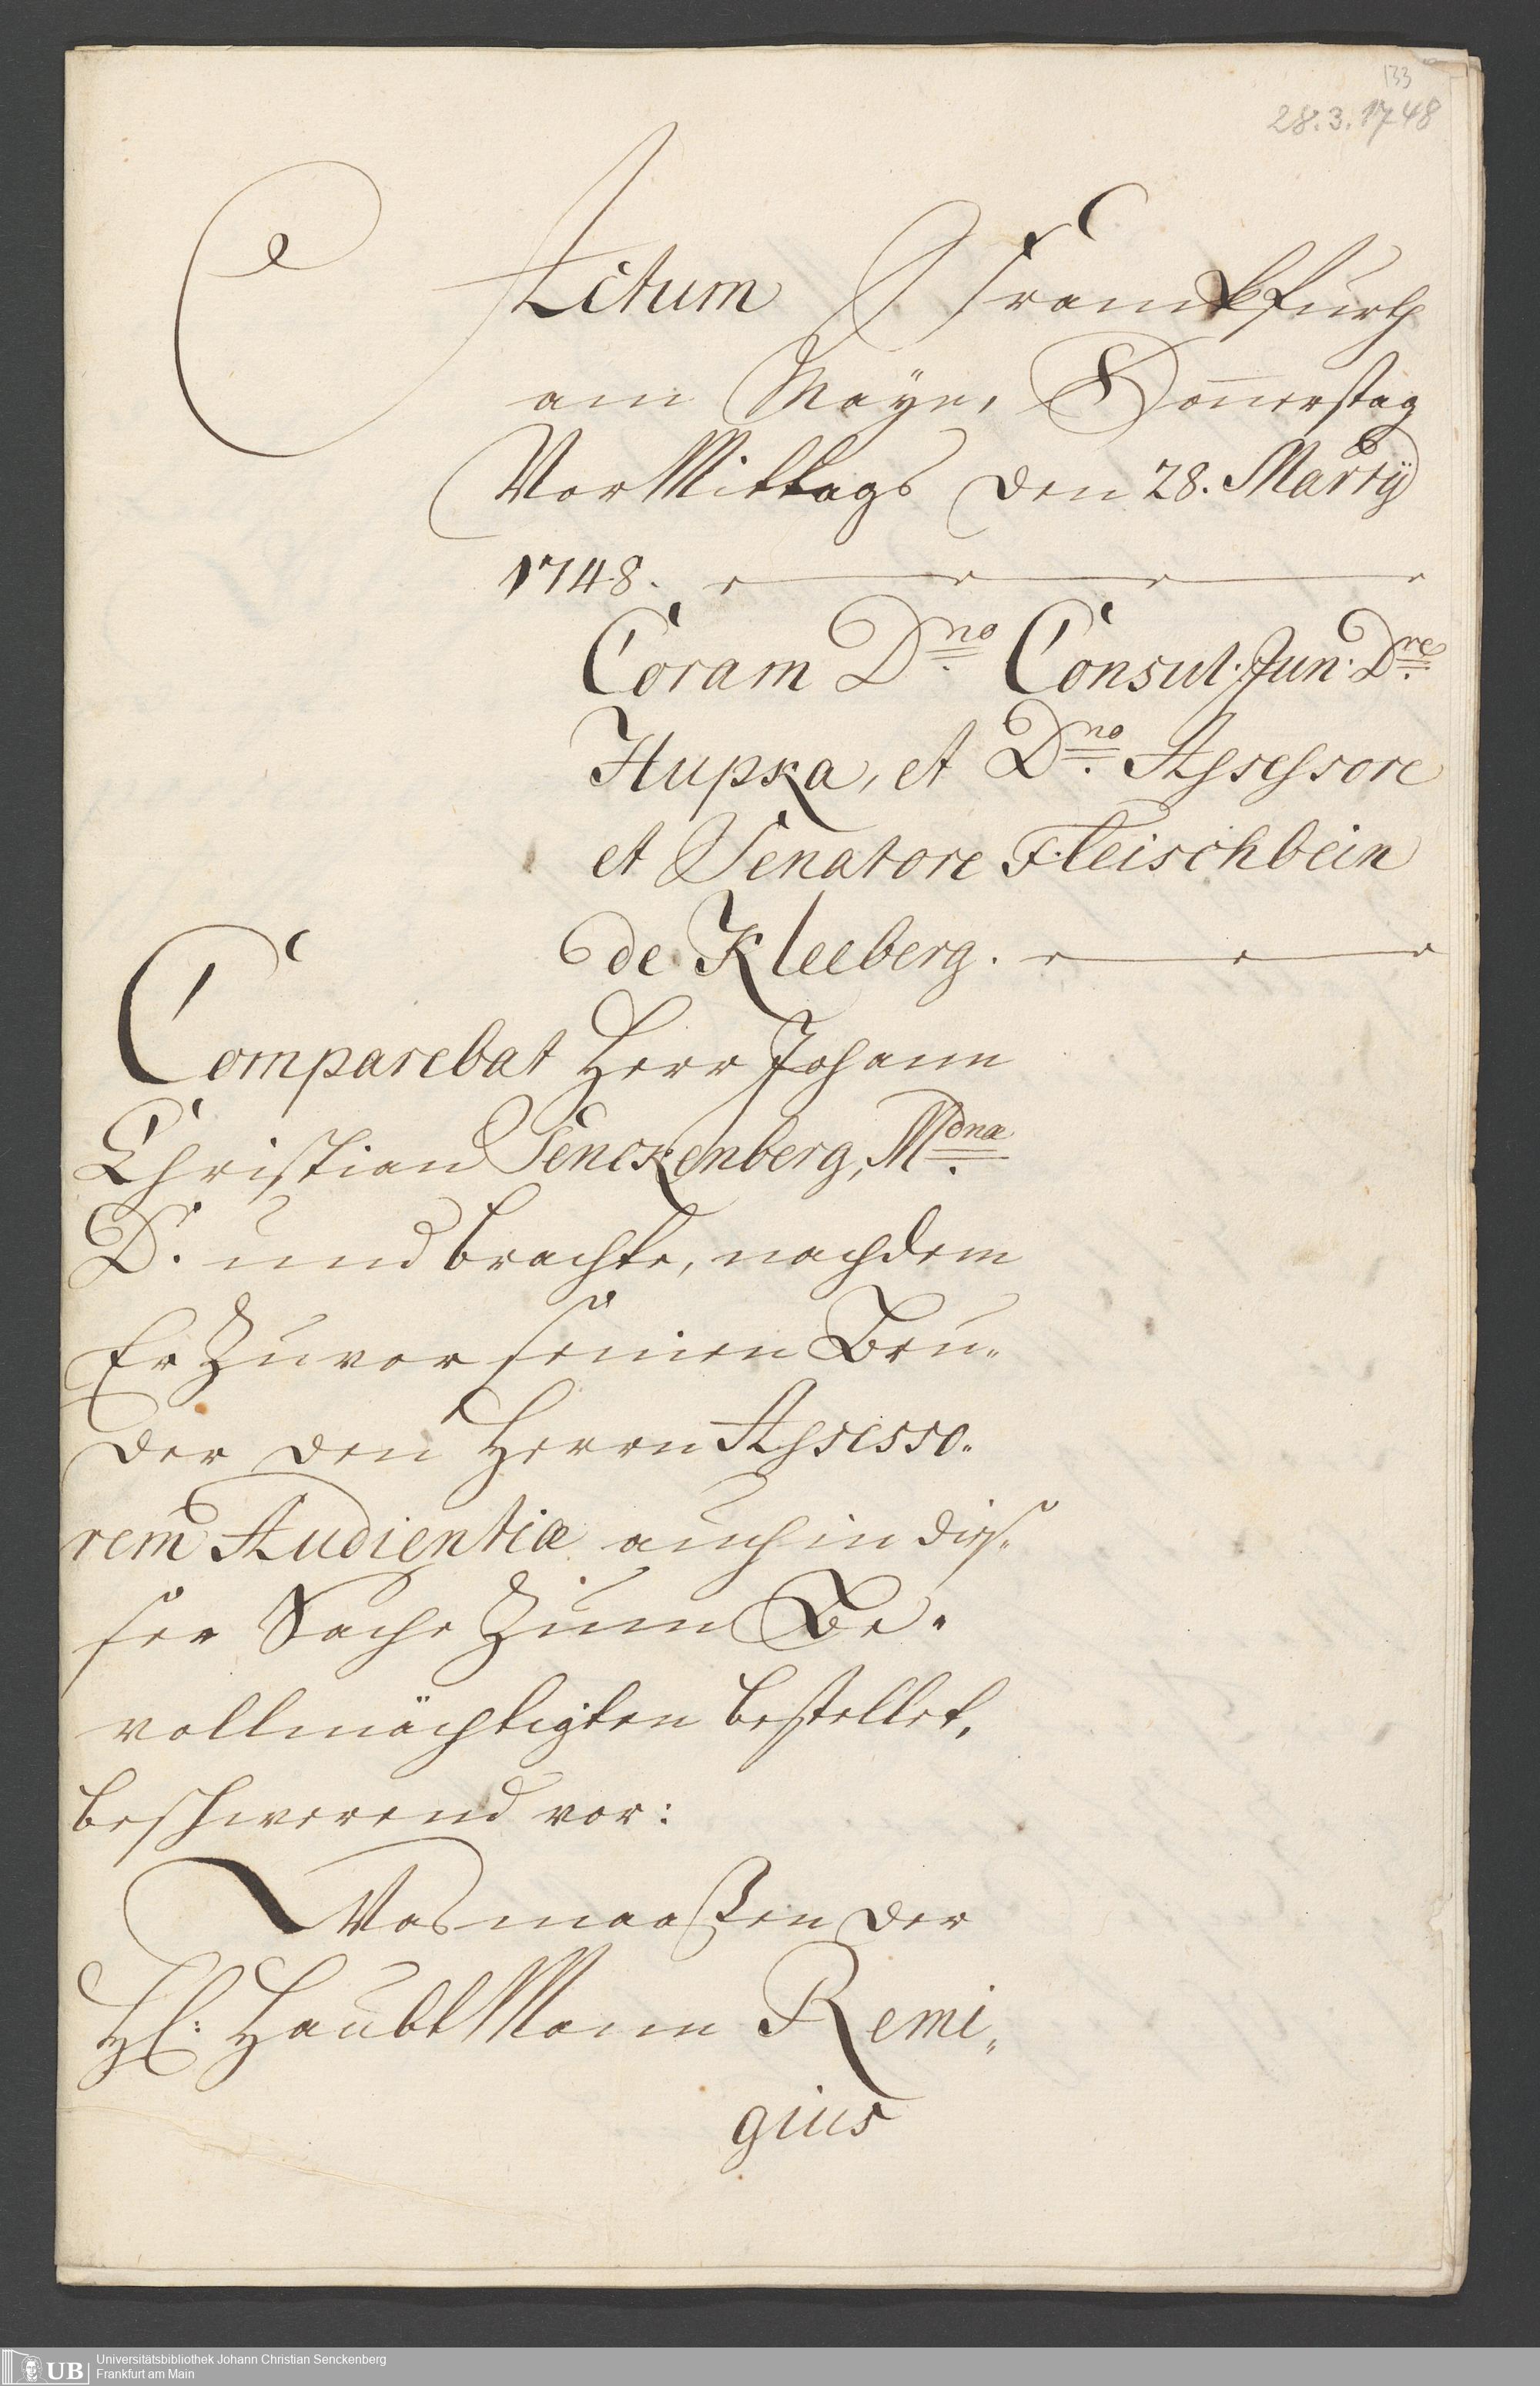 133
28.3.1748
Actum Franckfurth
am Mayn, Donnerstag
VorMittags den 28. Martÿ
1748.
Coram Dno. Consul. Jun. Dre.
Hupka, et Dno. Assessore
et Senatore Fleischbein
de Kleeberg.
Comparebat Herr Johann
Christian Senckenberg, Mdnæ.
D. und brachte, nachdem
Er Zuvor seinen Bru-
der den Herrn Assesso-
rem Audientiæ auch in dieß-
ser Sache Zum Be-
vollmächtigten bestellet,
beschwerend vor:
Wasmaaßen der
H: HaubtMann Remi-
gius
UB
Universitätsbibliothek Johann Christian Senckenberg
Frankfurt am Main